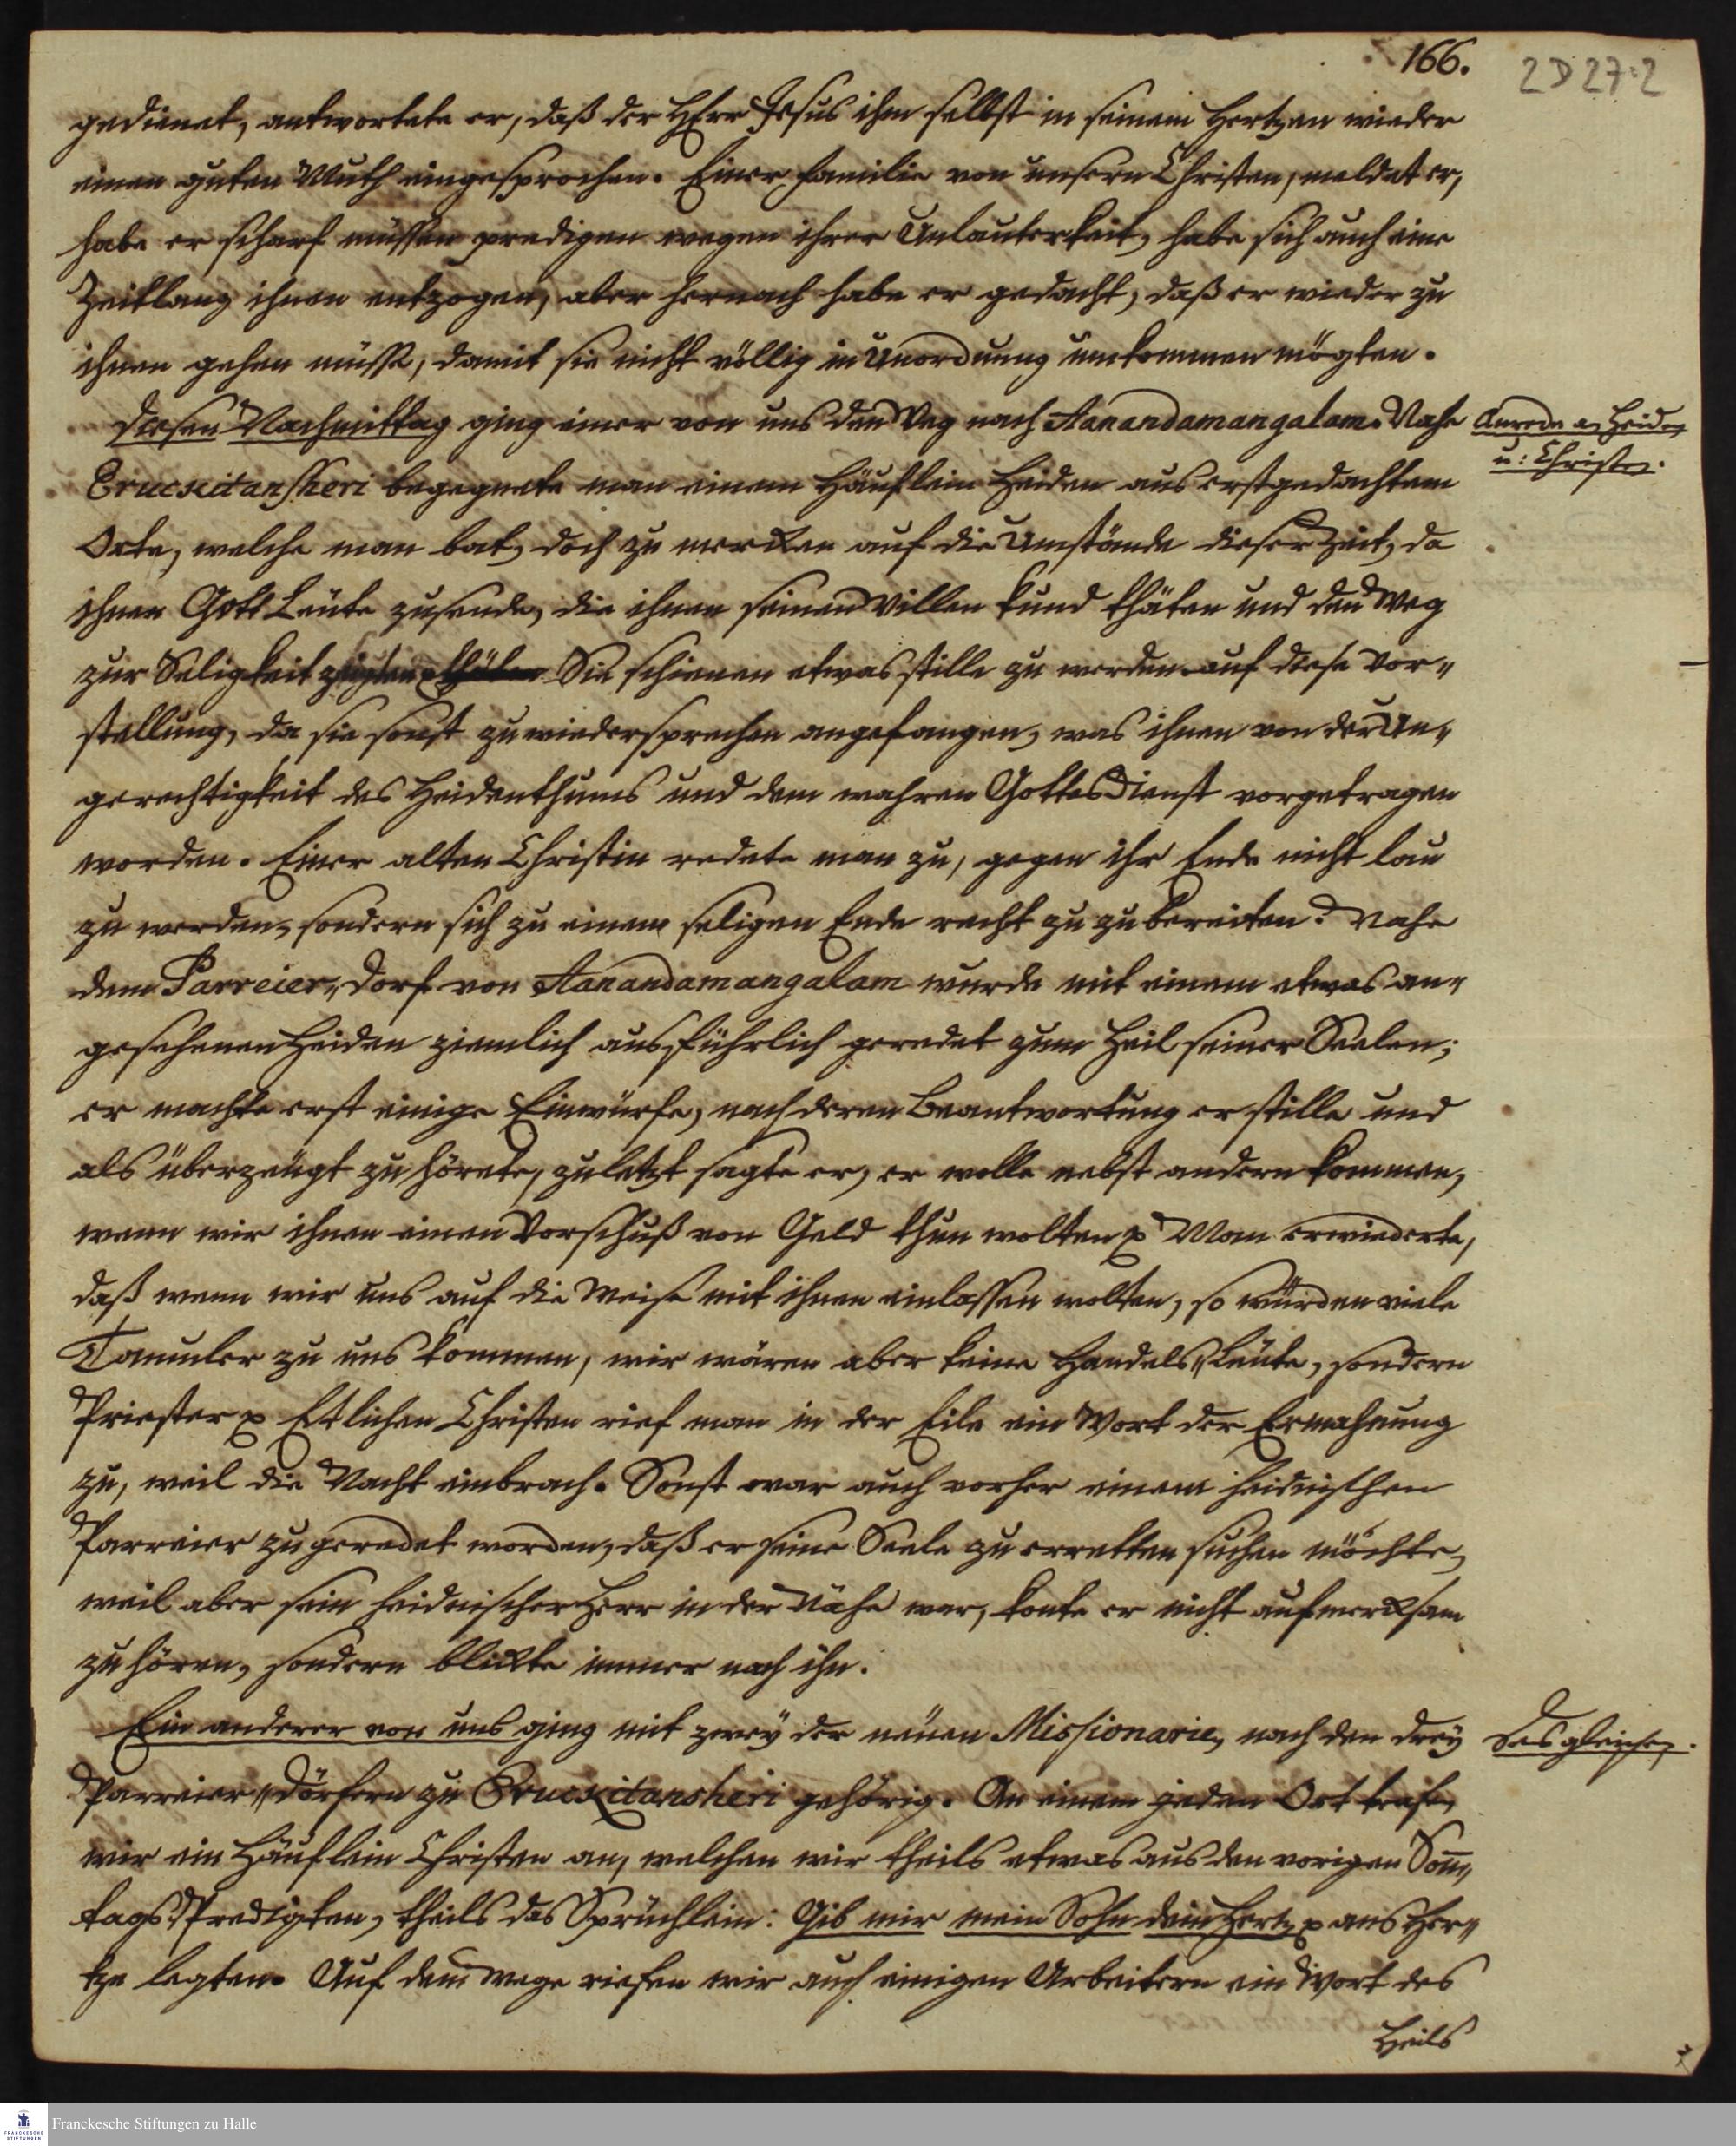 166.
2 D 27:2
gedienet, antwortete er, daß der HErr Jesus ihm selbst in seinem Hertzen wieder
einen guten Muth eingesprochen. Einer Familie von unsern Christen, meldet er,
habe er scharf müssen predigen wegen ihrer Unlauterkeit, habe sich auch eine
Zeitlang ihnen entzogen, aber hernach habe er gedacht, daß er wieder zu
ihnen gehen müsse, damit sie nicht völlig in Unordnung umkommen mögten.
Diesen Nachmittag ging einer von uns den Weg nach Aanandamangalam. Nahe
Anrede an Heiden
u: Christen.
Eruckitansheri begegnete man einem Häuflein Heiden aus erstgedachtem
Orte, welche man bat, doch zu mercken auf die Umstände dieser Zeit, da
ihnen Gott Leute zusende, die ihnen seinen Willen kund thäten und den Weg
zur Seligkeit zeigten. Sie schienen etwas stille zu werden auf diese Vor„
stellung, da sie sonst zu wiedersprechen angefangen, was ihnen von der Un„
gerechtigkeit des Heidenthums und dem wahren Gottesdienst vorgetragen
worden. Einer alten Christin redete man zu, gegen ihr Ende nicht lau
zu werden, sondern sich zu einem seligen Ende recht zu zu bereiten. Nahe
dem Parreier„Dorf von Aanandamangalam wurde mit einem etwas an„
gesehenen Heiden ziemlich ausführlich geredet zum Heil seiner Seelen;
er machte erst einige Einwürfe, nach deren Beantwortung er stille und
als überzeugt zu hörete, zuletzt sagte er, er wolle nebst andern kommen,
wenn wir ihnen einen Vorschuß von Geld thun wolten p Man erwiederte,
daß wenn wir uns auf die Weise mit ihnen einlassen wolten, so würden viele
Tamuler zu uns kommen, wir wären aber keine Handels„Leute, sondern
Priester p Etlichen Christen rief man in der Eile ein Wort der Ermahnung
zu, weil die Nacht einbrach. Sonst war auch vorher einem heidnischen
Parreier zugeredet worden, daß er seine Seele zu erretten suchen möchte,
weil aber sein heidnischer Herr in der Nähe war, konte er nicht aufmercksam
zu hören, sondern blickte immer nach ihn.
Ein anderer von uns ging mit zwey der neuen Missionarien nach den drey
Desgleichen.
Parreier„Dörfern zu Eruckitansheri gehörig. An einem jeden Ort trafen
wir ein Häuflein Christen an, welchen wir theils etwas aus den vorigen Soñ„
tags Predigten, theils das Sprüchlein: Gib mir mein Sohn dein Hertz p ans Her„
tze legten. Auf dem Wege riefen wir auch einigen Arbeitern ein Wort des
Heils
FRANCKESCHE STIFTUNGEN
Franckesche Stiftungen zu Halle